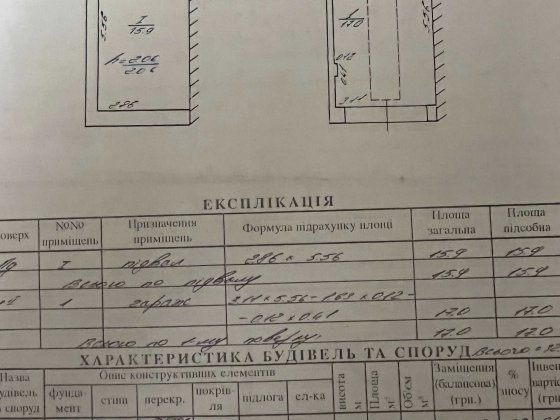 5.56
I
15.9
h=2.06
2.06
2.86
1
17.0
5.56
0.12
0.41
3.11
ЕКСПЛІКАЦІЯ
оверх №№ приміщень Призначення приміщень Формула підрахунку площі Площа загальна Площа підсобна
I підвал 2.86 x 5.56 15.9 15.9
Всього по підвалу 15.9 15.9
1 гараж 3.11 x 5.56 - 1.63 x 0.12 -
- 0.12 x 0.41 17.0 17.0
Всього по 1-му поверху: 17.0 17.0
ХАРАКТЕРИСТИКА БУДІВЕЛЬ ТА СПОРУД Всього =
Назва будівель а споруд Опис конструктивних елементів висота м Площа м² Об'єм м³ Заміщення (балансова) (грн.) % зносу
фунда-мент стіни перекр. покрів-ля підлога ел-ка